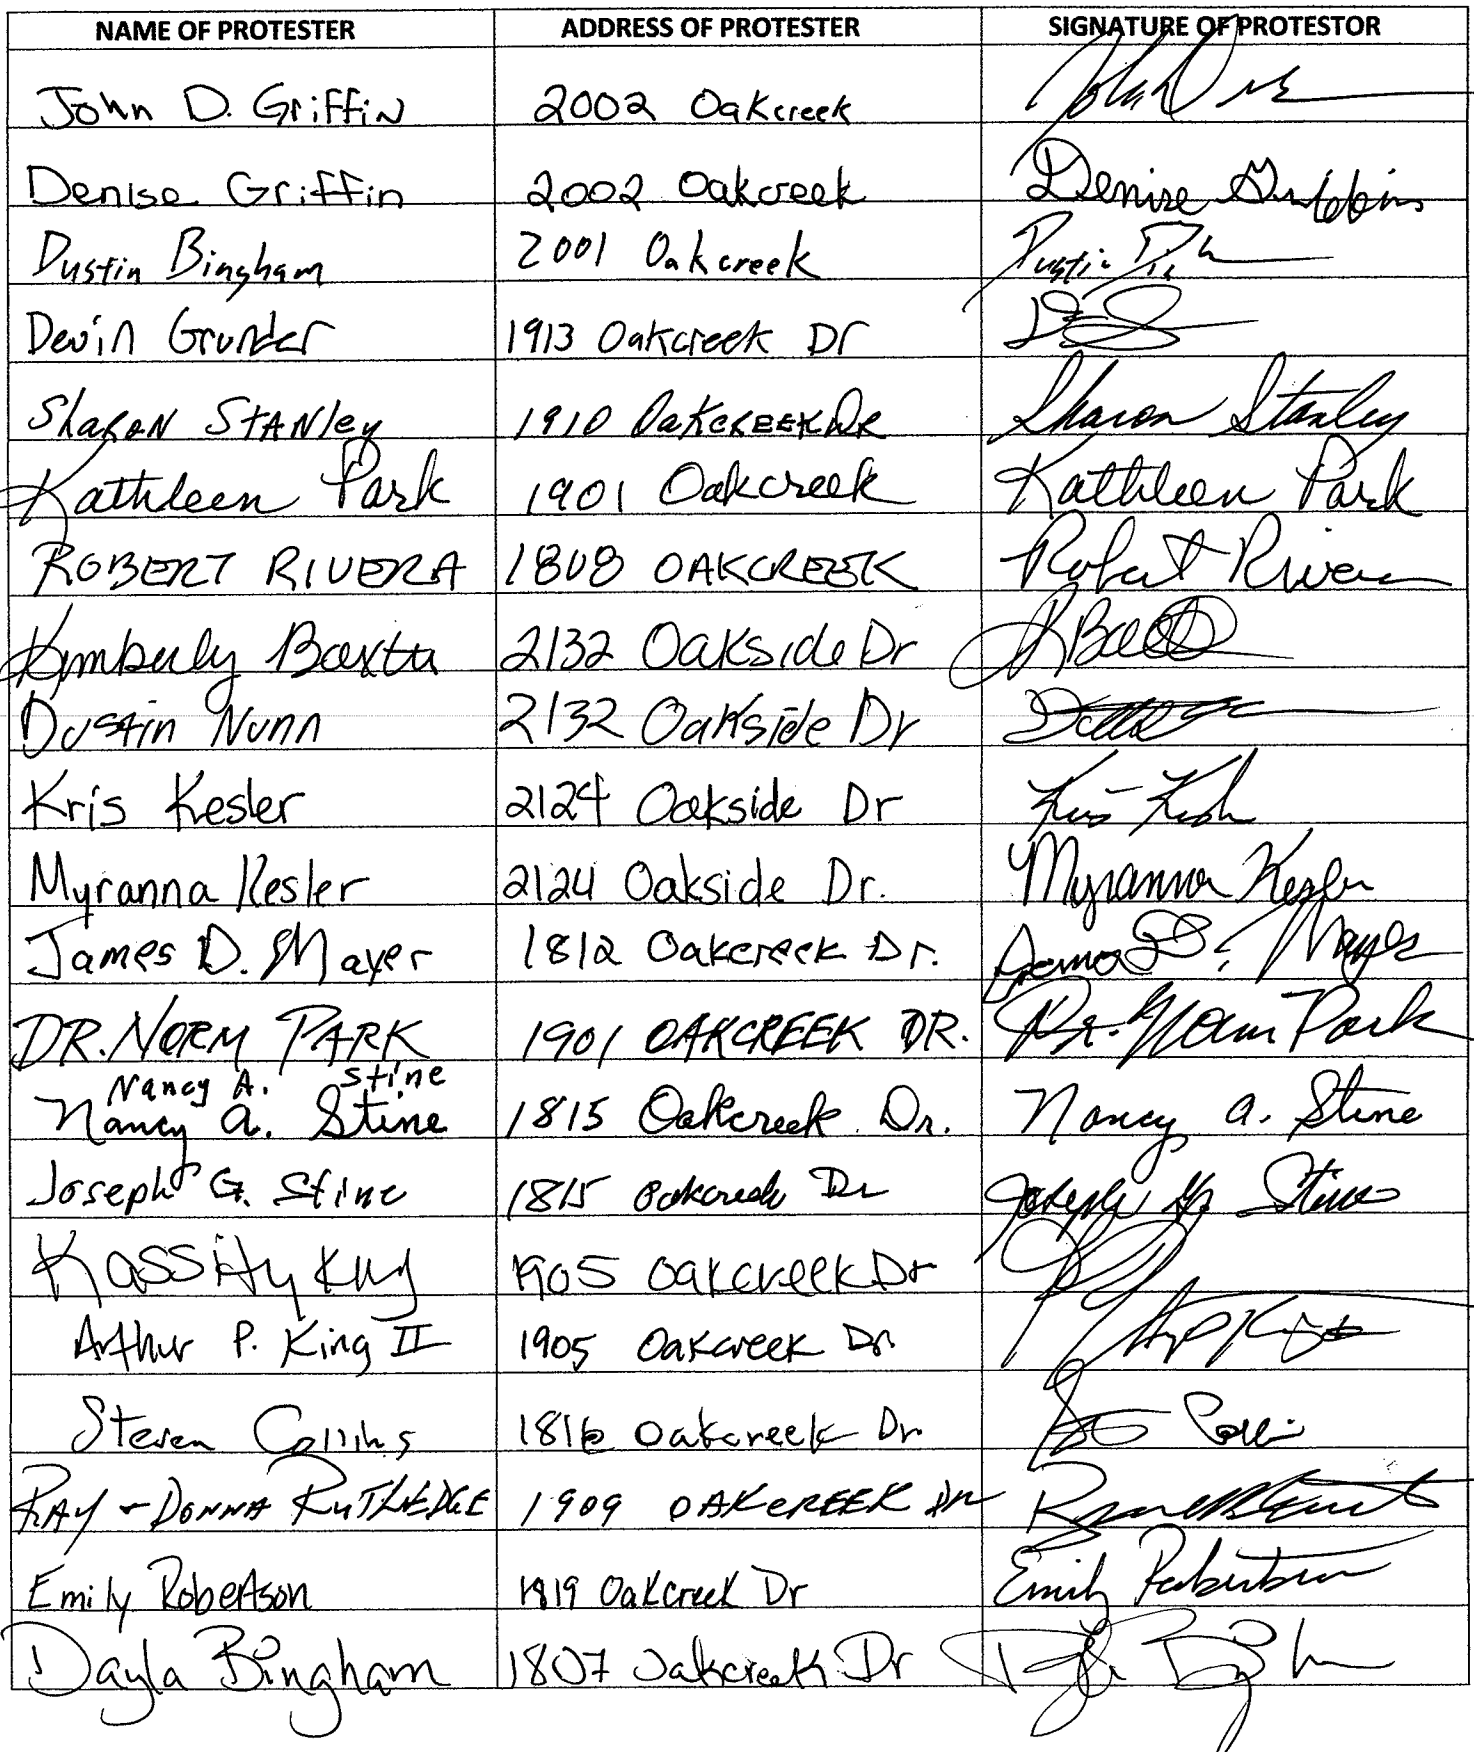 NAME OF PROTESTER ADDRESS OF PROTESTER SIGNATURE OF PROTESTOR
John D. Griffin 2002 Oakcreek John D
Denise Griffin 2002 Oakcreek Denise
Dustin Bingham 2001 Oakcreek Dustin
Devin Grunder 1913 Oakcreek Dr
Sharon Stanley 1910 Oakcreek Dr Sharon Stanley
Kathleen Park 1901 Oakcreek Kathleen Park
ROBERT RIVERA 1808 OAKCREEK Robert Rivera
Kimberly Baxter 2132 Oakside Dr
Dustin Nunn 2132 Oakside Dr
Kris Kesler 2124 Oakside Dr Kris
Myranna Kesler 2124 Oakside Dr. Myranna Kesler
James D. Mayer 1812 Oakcreek Dr. James D. Mayer
DR. NORM PARK 1901 OAKCREEK DR. Dr. Norm Park
Nancy A. Stine
Nancy A. Stine 1815 Oakcreek Dr. Nancy A. Stine
Joseph G. Stine 1815 Oakcreek Dr Joseph G. Stine
Kassity King 1905 Oakcreek Dr
Arthur P. King II 1905 Oakcreek Dr.
Steven Collins 1816 Oakcreek Dr.
RAY + DONNA RUTLEDGE 1909 OAKCREEK DR
Emily Robertson 1819 Oakcreek Dr Emily Robertson
Dayla Bingham 1807 Oakcreek Dr